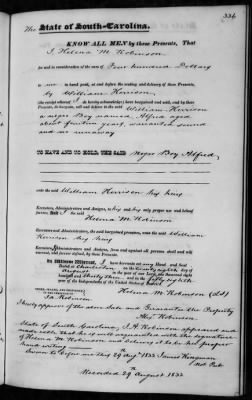 334
The State of South-Carolina.
KNOW ALL MEN by these Presents, That
I Helena M. Robinson
for and in consideration of the sum of Four hundred Dollars
to me in hand paid, at and before the sealing and delivery of these Presents,
by William Herrison,
(the receipt whereof I do hereby acknowledge) have bargained and sold, and by these
Presents, do bargain, sell and deliver to the said William Herrison
a negro Boy named Alfred aged
about fourteen years, warranted sound
and no runaway
TO HAVE AND TO HOLD, THE SAID Negro Boy Alfred,
unto the said William Herrison his heirs
Executors, Administrators and Assigns, to his and their only proper use and behoof
forever. And I the said
Helena M. Robinson
Executors and Administrators, the said bargained premises, unto the said William
Herrison his heirs
Executors, Administrators and Assigns, from and against all persons shall and will
warrant, and forever defend, by these Presents.
In Witness Whereof, I have hereunto set my Hand and Seal
Dated at Charleston on the twenty eighth day of
August in the year of our Lord, one thousand eight
hundred and thirty two and in the fifty seventh year of the
Independence of the United States of America.
Helena M. Robinson (LS)
J. A. Robinson
I hereby approve of the above Sale and Guarantee the Property
State of South Carolina, J. A. Robinson appeared and
made oath that he is well acquainted with the signature
of Helena M. Robinson and believes it to be her proper
hand writing
Sworn to before me this 29 augt 1832
Not. Pub.
Recorded 29th August 1832